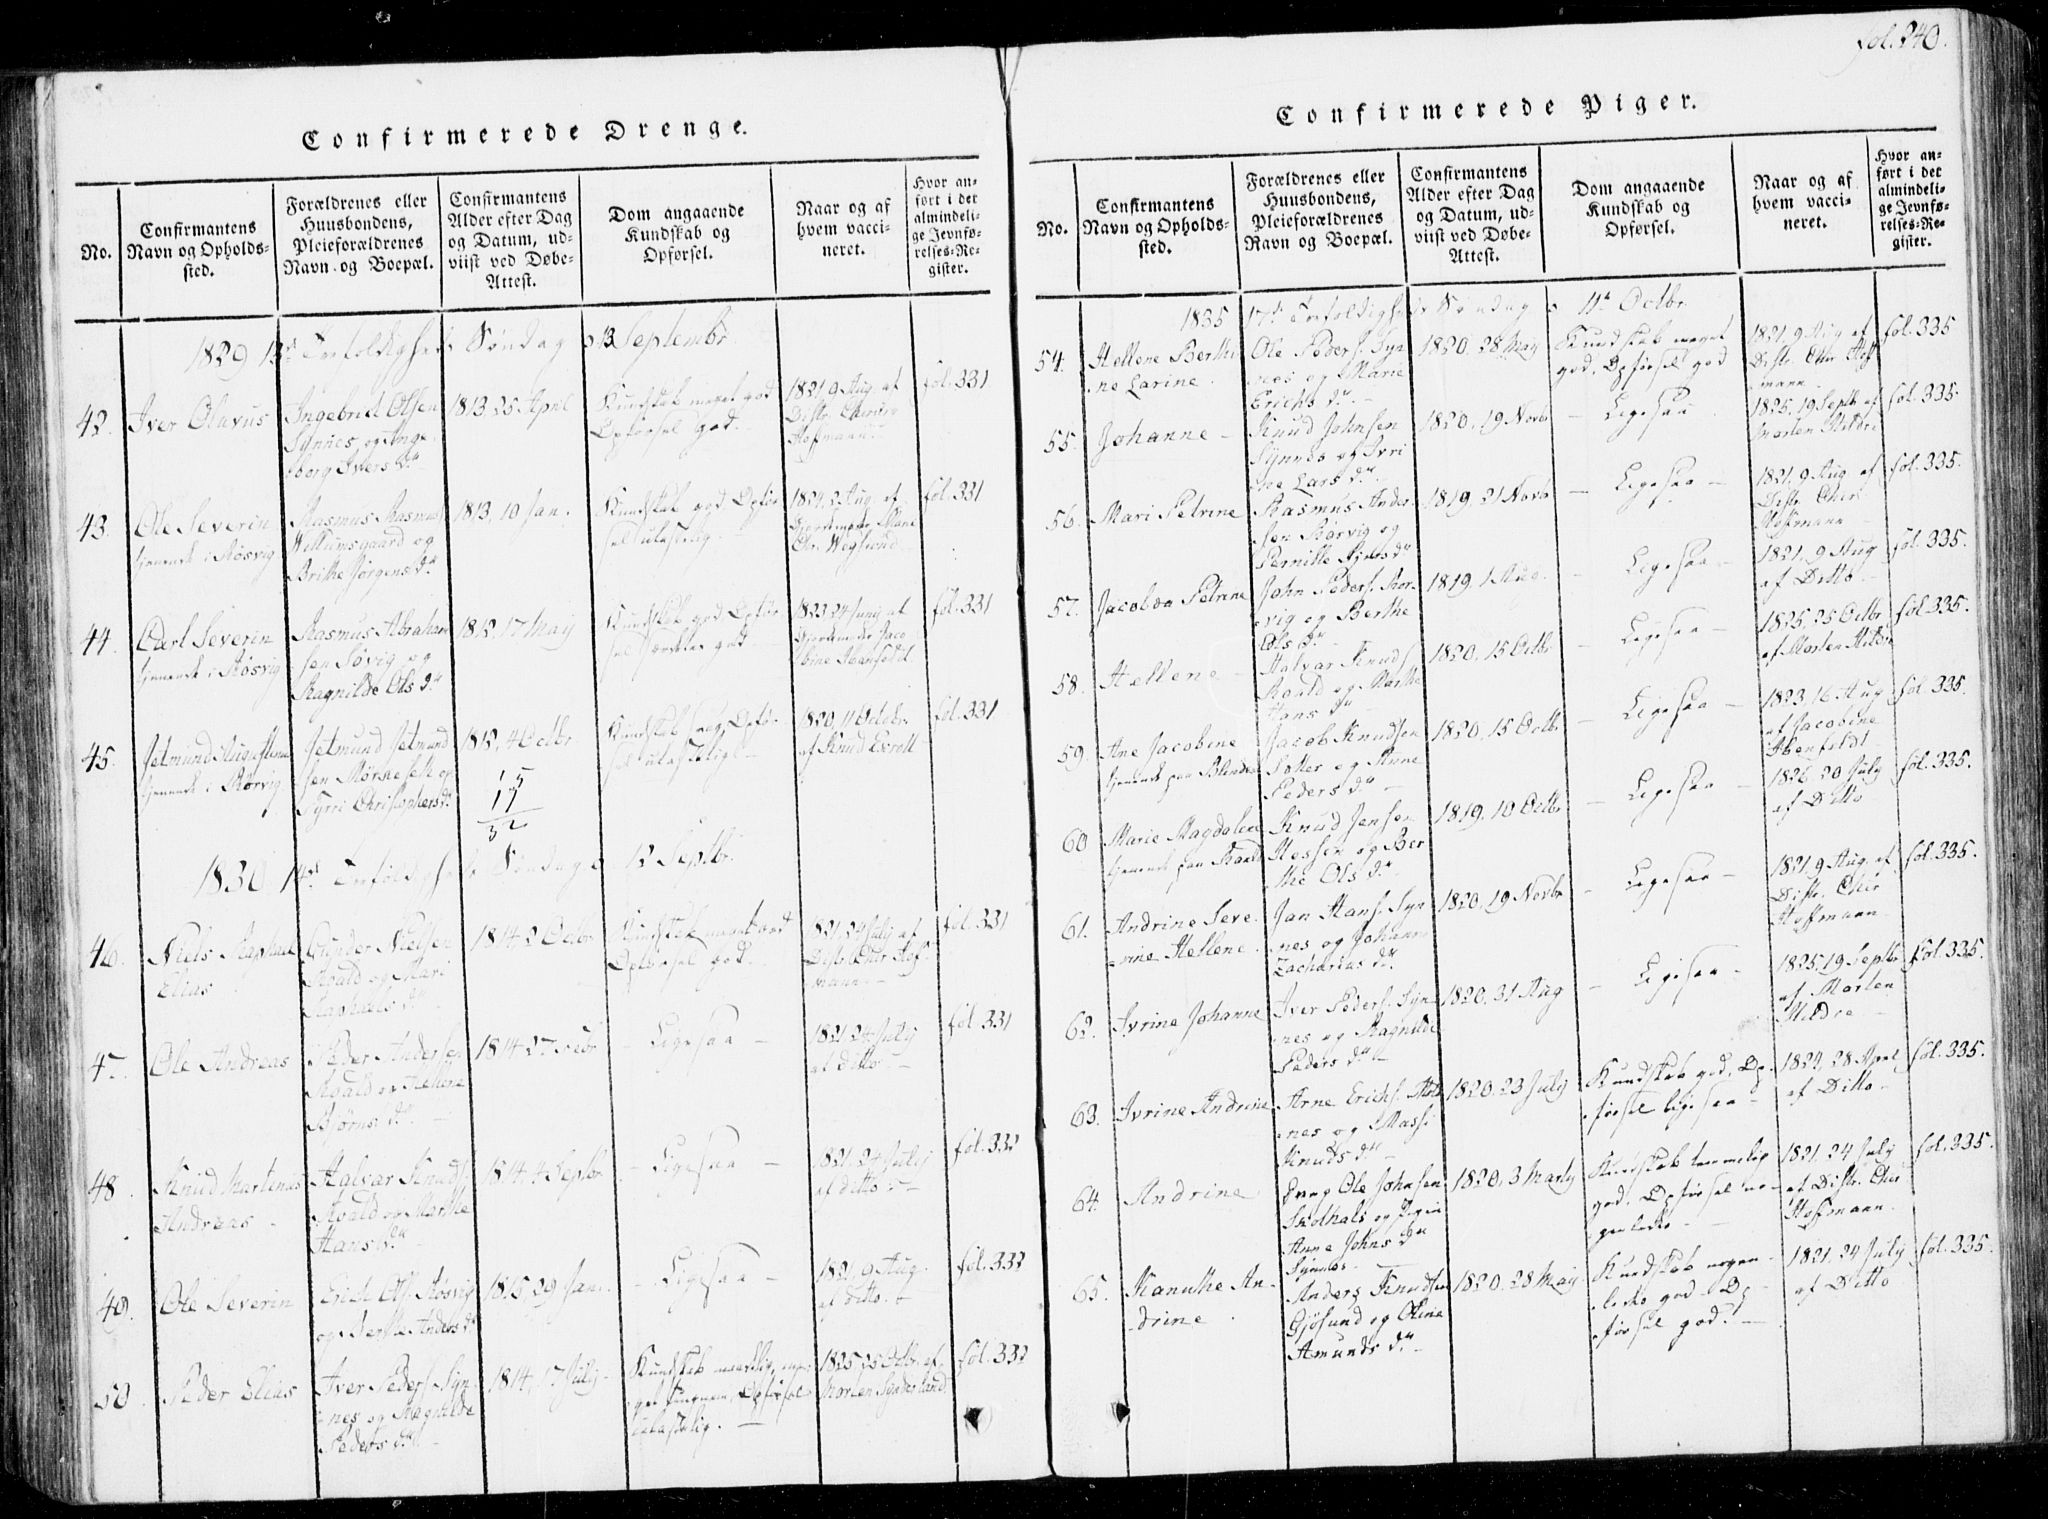 Fol. 240.
Confirmerede Drenge.
No.
Confirmantens
Navn og Opholds-
sted.
Forældrenes eller
Huusbondens,
Pleieforældrenes
Navn og Boepæl.
Confirmantens
Alder efter Dag
og Datum, ud-
viist ved Døbe-
Attest.
Dom angaaende
Kundskab og
Opførsel.
Naar og af
hvem vacci-
neret.
Hvor an-
ført i det
almindeli-
ge Jevnfø-
relses-Re-
gister.
1829 13de Trefoldigheds Søndag d 13 Septembr
42.
Iver Olavus
Ingebrict Olsen
Synnes og Inge
borg Ivers d.
1813 25 April
Kundskab meget god
Opførsel god.
1821, 9 Aug. af
Distr. Chirurg
Hoffmann
fol. 331
43.
Ole Severin
tjenende i Røsvig
Rasmus Rasmus
Willumsgaard og
Brithe Jørgens d.
1813, 10 Jan.
Kundskab god Opfør
sel ulastelig.
1824, 2 Aug. af
fol. 331
44.
Carl Severin
tjenende i Røsvig
Rasmus Abraham
sen Søvig og
Ragnilde Ols d.
1812, 17 May
Kundskab god Opfør
sel god
1823 24 Juny af
fol. 331
45.
Jetmund Augustinus
tjenende i Rørvig
Jetmund Jetmund
sen Mørkeseth og
Syrri Christophers d.
1812, 4 Octbr.
15
17
32
Kundskab svag Opfør
sel ulastelig
1820, 11 Octobr.
af Knud Exrott
fol. 331
1830 14de Trefoldigheds Søndag d 12 Septbr.
46.
Niels Raphael
Elias
Gunder Nielsen
Roald og Mari
Raphaels d.
1814 2 Octbr
Kundskab meget god
Opførsel god.
1821, 24 July af
Distr. Chir Hof
mann
fol. 331
47.
Ole Andreas
Peder Andersen
Roald og Hellene
Bjørns d.
1814 27 Febr
Ligesaa
1821 24 July
af ditto
fol 331
48.
Knud Martinus
Andreas
Halvar Knuds
Roald og Marthe
Hans d.
1814, 4 Septbr
Ligesaa
1821, 24 July
af ditto
fol. 332
49.
Ole Severin
Erich Ols. Røsvig
og Berthe Anders d.
1815 29 Jan.
Ligesaa
1821, 9 Aug.
af ditto
fol. 332
50.
Peder Elias
Iver Peders Syn
nes og Ragnilde
Peders d.
1814, 17 July
Kundskab maadelig,
Opførsel
ulastelig.
1825, 25 Octbr. af
Morten Synnesland
fol. 332
Confirmerede Piger.
No.
Confirmantens
Navn og Opholds-
sted.
Forældrenes eller
Huusbondens,
Pleieforældrenes
Navn og Boepæl.
Confirmantens
Alder efter Dag
og Datum, ud-
viist ved Døbe-
Attest.
Dom angaaende
Kundskab og
Opførsel.
Naar og af
hvem vacci-
neret.
Hvor an-
ført i det
almindeli-
ge Jevnfø-
relses-Re-
gister.
1835 17de Trefoldigheds Søndag d 11te Octbr.
54.
Hellene Berthi
ne Larine
Ole Peders. Syn
nes og Marie
Erichs d.
1820. 28 May
Kundskab meget
god. Opførsel god
1821, 9 Aug af
Distr. Chir Hoff
mann
fol. 335
55.
Johanne
Knud Johnsen
Synnes og Ivri
ne Lars d.
1820, 19 Novbr
Ligesaa
1825, 19 Septbr af
Morten Hildre
fol. 335.
56.
Mari Petrine
Rasmus Ander
sen Rørvig og
Pernille d.
1819, 21 Novbr
Ligesaa
1821, 9 Aug af
Distr. Chir
Hoffmann
fol. 335.
57.
Jacobea Petrine
John Peders. Rør
vig og Berthe
Ols d.
1819, 1 Aug.
Ligesaa
1821, 9 Aug
af Ditto
fol. 335.
58.
Hellene
Halvar Knuds
Roald og Marthe
Hans d.
1820, 15 Octbr
Ligesaa
1825, 25 Octbr
af Morten Hildre
fol. 335.
59.
Ane Jacobine
tjenende paa Blindem
Jacob Knudsen
Sætter og Anne
Peders d.
1820, 15 Octbr
Ligesaa
1823, 16 Aug
af Jacobine
Abenfeldt
fol. 335.
60.
Marie Magdalene
tjenende paa Roald
Knud Jensen
Hessen og Ber
the Ols d.
1819, 10 Octbr
Ligesaa
1826 20 July
af Ditto
fol. 335.
61.
Andrine Seve
rine Hellene.
Jan Hans. Syn
nes og Johanne
Zacharias d.
1820, 19 Novbr
Ligesaa
1821, 9 Aug. af
Distr. Chir
Hoffmann
fol. 335.
62.
Ivrine Johanne
Iver Peders. Syn
nes og Ragnilde
Peders d.
1820, 31 Aug
Ligesaa
1825, 19 Septbr
af Morten
Hildre
fol. 335.
63.
Ivrine Andrine
Arne Erichs.
nes og Massi
Knuds d.
1820, 23 July
Kundskab god, Op
førsel ligesaa
1824, 28 April
af Ditto
fol. 335.
64.
Andrine
Ung. Ole Johnsen
Skolhals og Pigen
Anne Johns d.
Synnes
1820, 3 Marty
Kundskab temmelig
god. Opførsel no
genledes
1821, 24 July
af Distr. Chir
Hoffmann.
fol. 335.
65.
Kanuthe An
drine
Anders Knudsen
Gjøsund og Oline
Amunds d.
1820. 28 May
Kundskab nogen
ledes god Op
førsel god.
1821, 24 July
af Ditto
fol. 335.